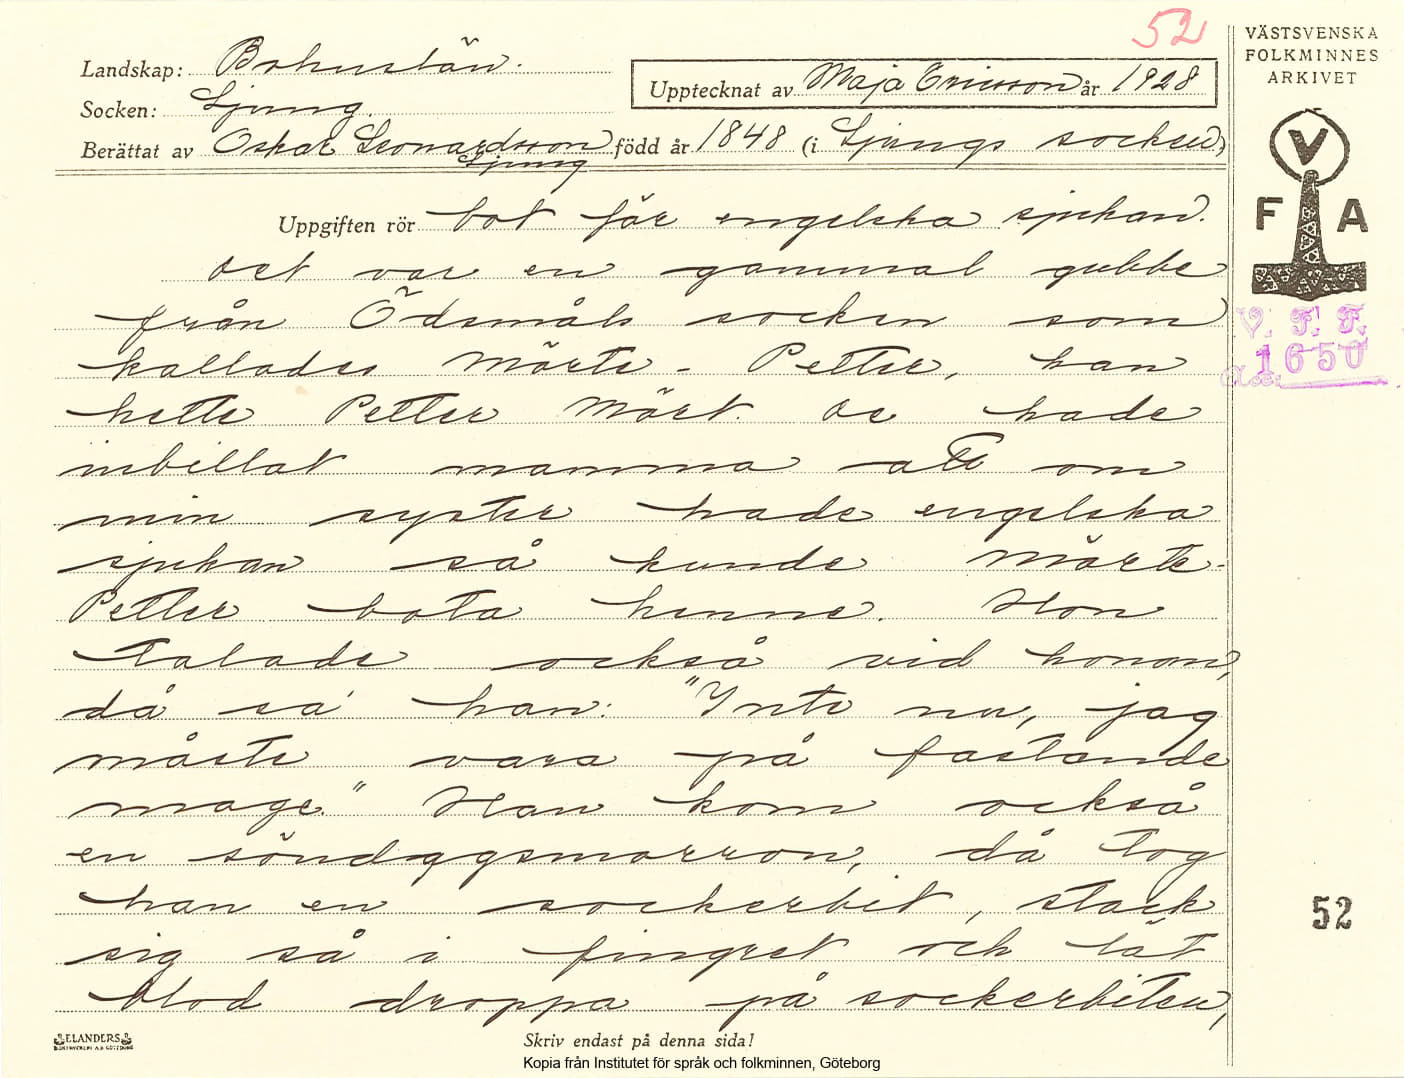 52
VÄSTSVENSKA
FOLKMINNES
ARKIVET
Landskap: Bohuslän.
Upptecknat av Maja Ericsson år 1928
Socken: Ljung.
Berättat av Oskar Leonardsson född år 1848 (i Ljungs socken)
Ljung
V
F A
Uppgiften rör bot för engelska sjukan.
Det var en gammal gubbe
från Ödsmåls socken som
V. F. F.
kallades Mörte-Petter, han
Acc. 1650
hette Petter Mört. De hade
inbillat mamma att om
min syster hade engelska
sjukan så kunde Mörte-
Petter bota henne. Hon
talade också vid honom,
då sa' han: "Inte nu, jag
måste vara på fastande
mage." Han kom också
en söndagsmorron, då tog
han en sockerbit, stack
52
sig så i fingret och lät
blod droppa på sockerbiten,
ELANDERS
Skriv endast på denna sida!
Kopia från Institutet för språk och folkminnen, Göteborg